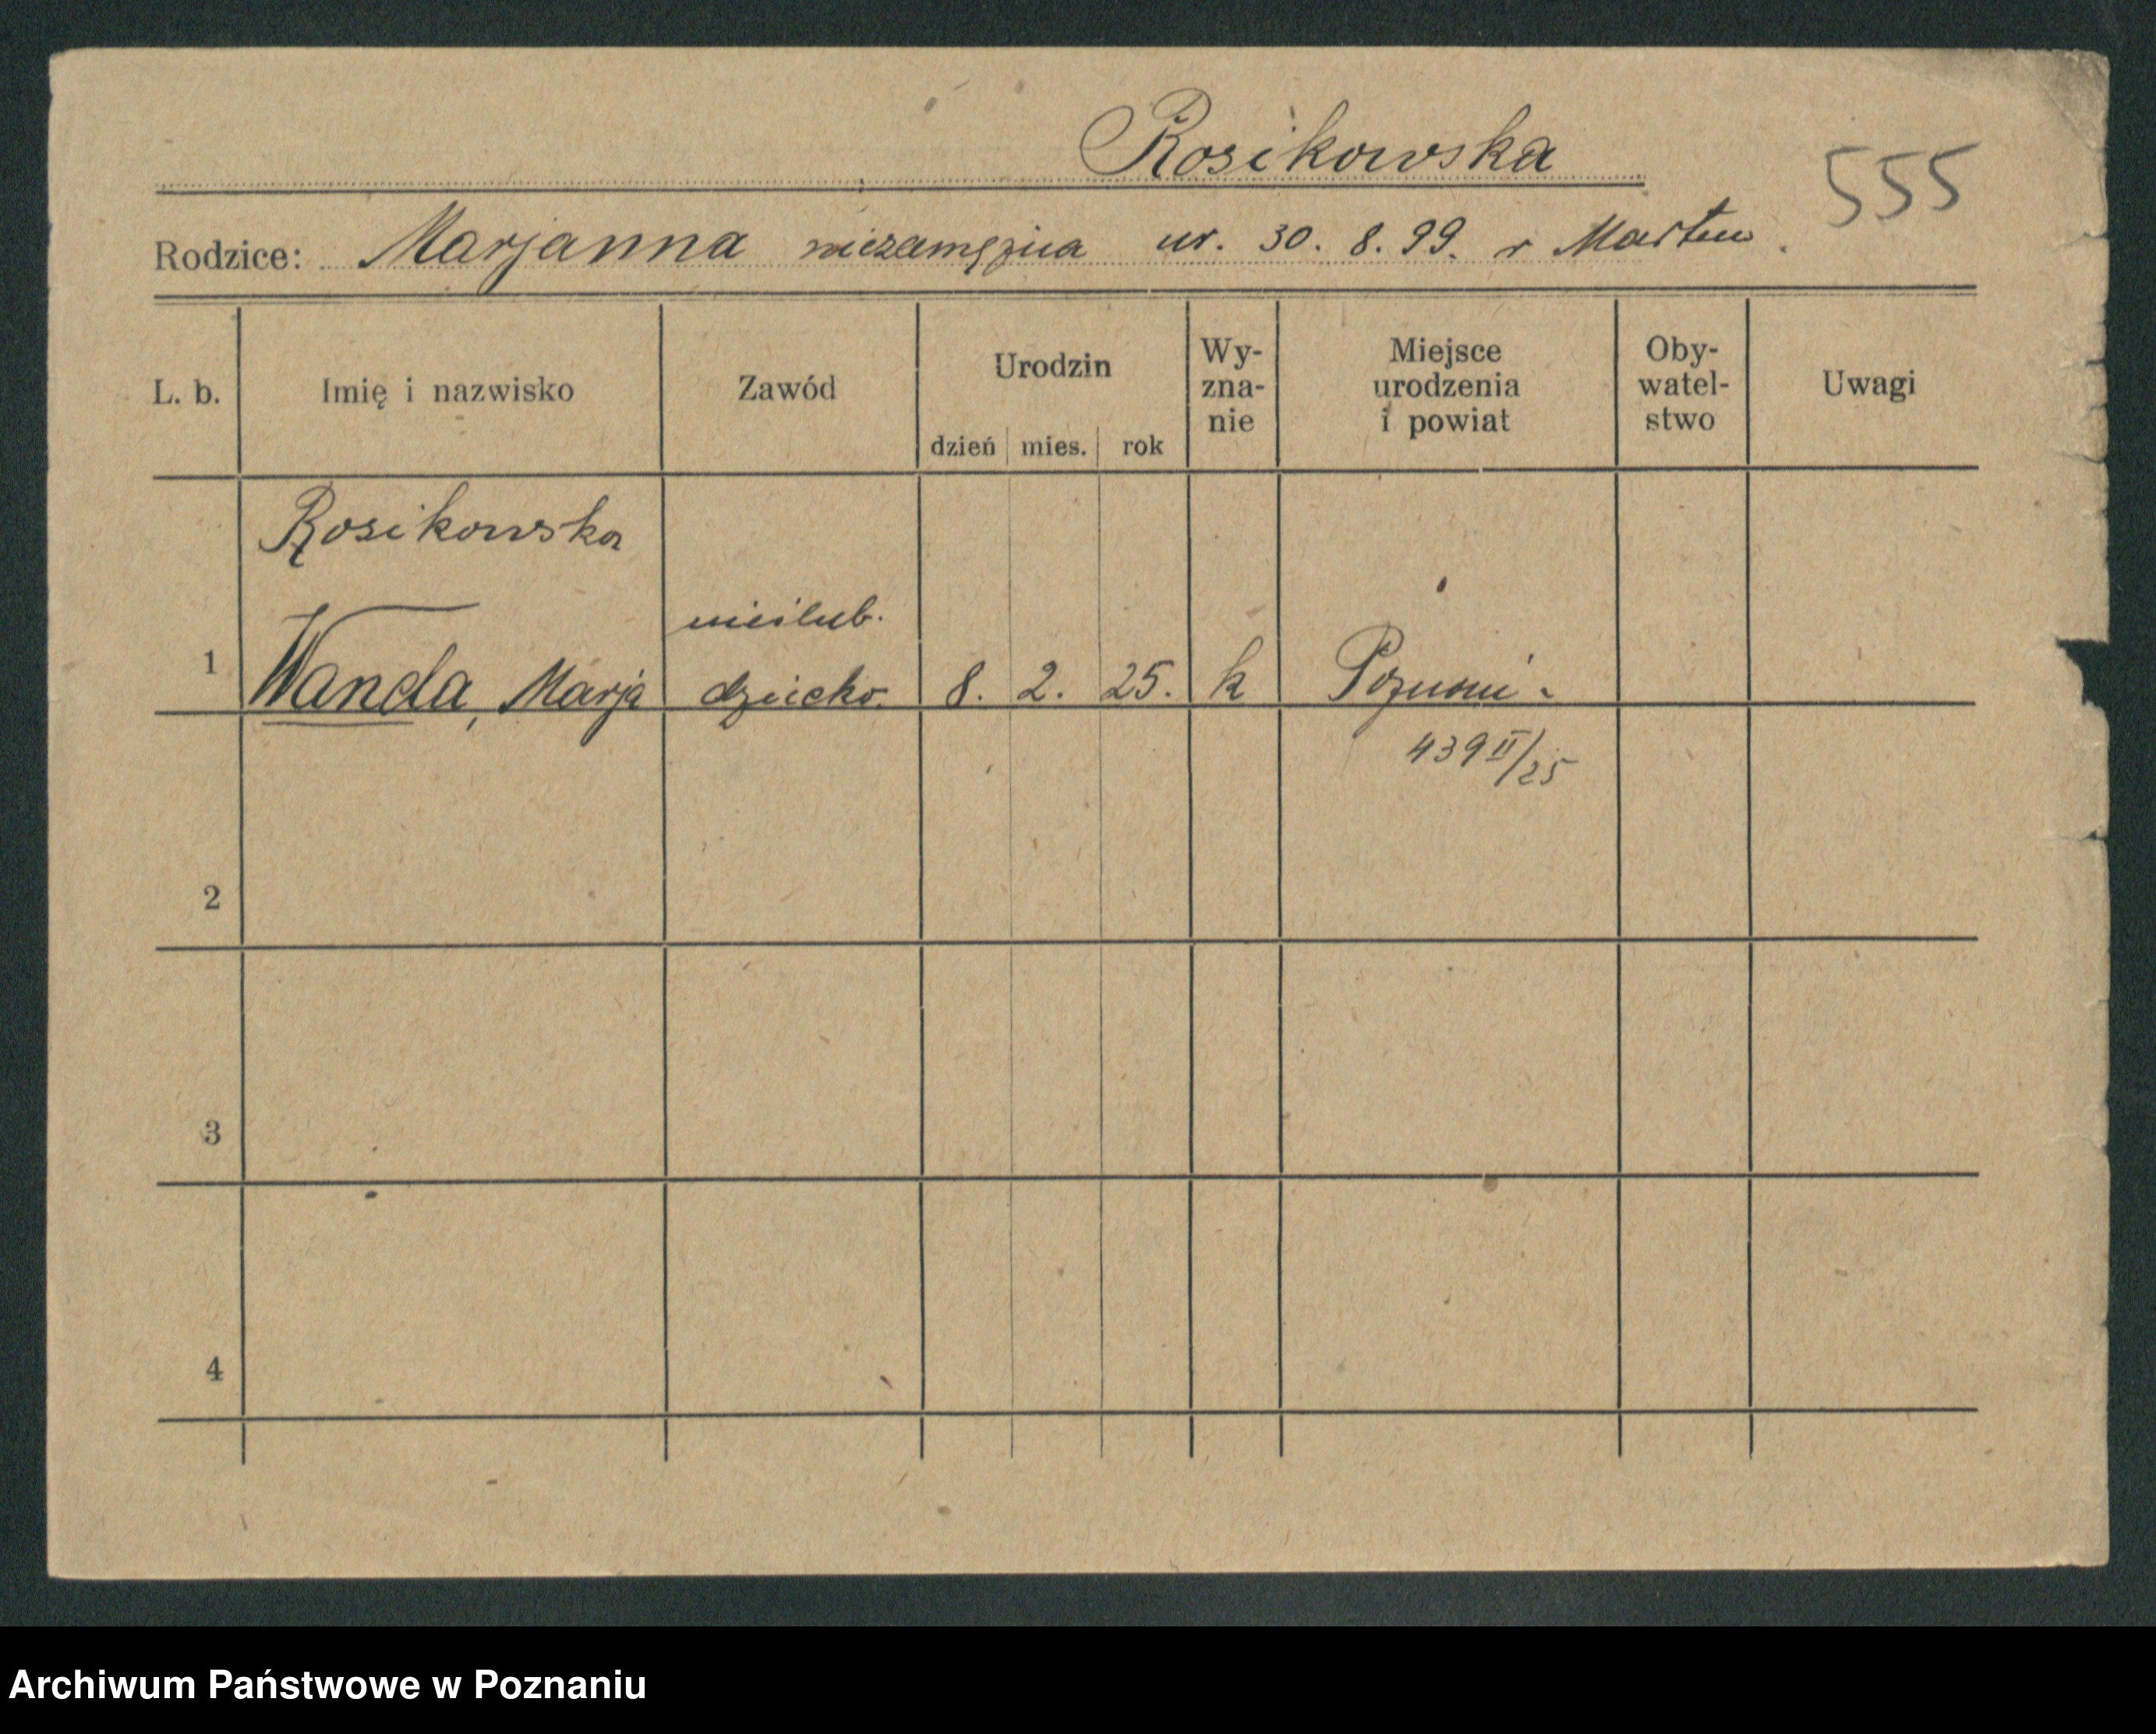 Rosikowska
555
Rodzice: Marjanna niezamężna ur. 30. 8. 99. r Marten.
L. b. Imię i nazwisko Zawód Urodzin dzień mies. rok Wy-zna-nie Miejsce urodzenia i powiat Oby-watel-stwo Uwagi
Rosikowska
nieślub.
1 Wanda, Marja dziecko. 8. 2. 25. k Poznań.
439 II/25
2
3
4
Archiwum Państwowe w Poznaniu